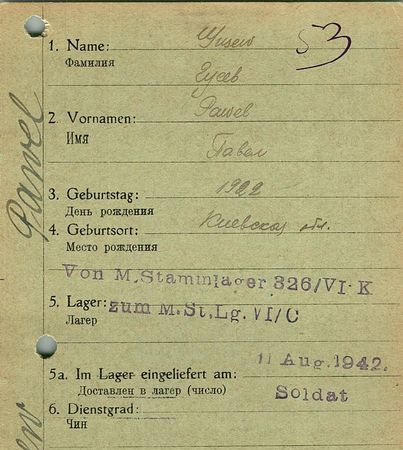 53
1. Name:
Фамилия
Гусев
2. Vornamen: Pawel
Имя
Павел
3. Geburtstag: 1922
День рождения
4. Geburtsort: Киевская обл.
Место рождения
Von M.Stammlager 326/VI-K
5. Lager: zum M.St.Lg.VI/C
Лагер
5a. Im Lager eingeliefert am: 11 Aug.1942.
Доставлен в лагер (число)
6. Dienstgrad: Soldat
Чин
Pawel